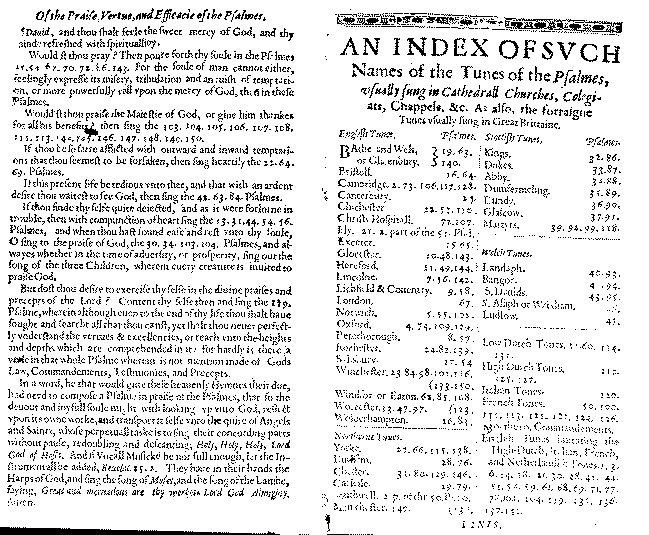 Of the Praise, Vertue, and Efficacie of the Psalmes.
David, and thou shalt feele the sweet mercy of God, and thy
minde refreshed with spirituall joy.
Would st thou pray? Then poure forth thy soule in the Psalmes
For the soule of man cannot either,
feelingly expresse its misery, tribulation and anguish of temptati-
on, or more powerfully call upon the mercy of God, then in these
Psalmes.
Would st thou praise the Majestie of God, or give him thankes
for all his benefits, then sing the 103. 104. 105. 106. 107. 108.
111. 113. 144. 145. 146. 147. 148. 149. 150.
If thou be before afflicted with outward and inward temptati-
ons that thou seemest to be forsaken, then sing heartily the 22. 64.
69. Psalmes.
If this present life be tedious unto thee, and that with an ardent
desire thou waitest to see God, then sing the 42. 63. 84. Psalmes.
If thou finde thy selfe quite dejected, and as it were forlorne in
trouble, then with compunction of heart sing the 13. 31. 44. 54. 56.
Psalmes, and when thou hast found ease and rest unto thy soule,
O sing to the praise of God, the 30. 34. 103. 104. Psalmes, and al-
wayes whether in the time of adversity, or prosperity, sing out the
song of the three Children, wherein every creature is invited to
praise God.
But dost thou desire to exercise thy selfe in the divine praises and
precepts of the Lord? Content thy selfe then and sing the 119.
Psalme, wherein although even to the end of thy life thou shalt have
sought and searcht all that thou canst, yet shalt thou never perfect-
ly understand the vertues & excellencies, or reach unto the heights
and depths which are comprehended in it: for hardly is there a
verse in that whole Psalme wherein is not mention made of Gods
Law, Commandements, Testimonies, and Precepts.
In a word, he that would give these heavenly Hymnes their due,
had need to compose a Psalme in praise of the Psalmes, that so the
devout and joyfull soule might with looking up unto God, reflect
upon its owne worke, and transport it selfe unto the quire of Angels
and Saints, whose perpetuall taske is to sing their concording parts
without pause, redoubling and descanting, Holy, Holy, Holy, Lord
God of Hosts. And if Vocall Musicke be not full enough, let the In-
struments be added, Revelat. 15. 2. They have in their hands the
Harps of God, and sing the song of Moses, and the song of the Lambe,
saying, Great and mervailous are thy workes Lord God Almighty,
Amen.
AN INDEX OF SVCH
Names of the Tunes of the Psalmes,
usually sung in Cathedrall Churches, Colegi-
ats, Chappels, &c. As also, the forraigne
Tunes usually sung in Great Brittaine.
English Tunes. Psalmes.
BAthe and Wels, 19. 63.
or Glasenbury. 140.
Bristoll. 16. 64.
Cambridge. 2. 73. 106. 117. 128.
Canterbury.
Chichester 22. 57.
Christs Hospitall. 77. 107.
Ely. 21. 2. part of the 51. Psal.
Exeter. 15. 65.
Glocester. 10. 48. 143.
Hereford. 21. 49. 144.
Lincolne. 7. 56. 142.
Lichfield & Coventry. 9. 58.
London. 67.
Norwich. 5. 55. 102.
Oxford. 4. 74. 109. 129.
Peterborough. 8. 57.
Rochester. 24. 82. 139.
17. 54
Winchester. 23. 84. 58. 101. 116.
(133. 150.
Windsor or Eaton. 62. 85. 108.
Worcester. 33. 47. 97.
Wolverhampton. 16. 83.
Northerne Tunes.
Yorke. 22. 66. 115. 138.
Durham. 28. 76.
Chester. 31. 80. 129. 146.
Carlisle. 19. 79.
Manchester. 149.
Scottish Tunes. Psalmes.
Kings. 32. 86.
Dukes. 33. 87.
Abby. 34. 88.
Dunfermeling. 35. 89.
Dundy. 36. 90.
Glasgow. 37. 91.
Martyrs. 39. 92. 99. 118.
Welch Tunes.
Landaph. 40. 93.
Bangor. 41. 94.
S. Davids. 43. 95.
S. Asaph or Wrixham.
Ludlow. 45.
Low Dutch Tones.
High Dutch Tunes.
125. 127.
Italian Tunes. 120.
French Tunes. 50. 100.
High-Dutch, Italian, French,
and Netherland
FINIS.